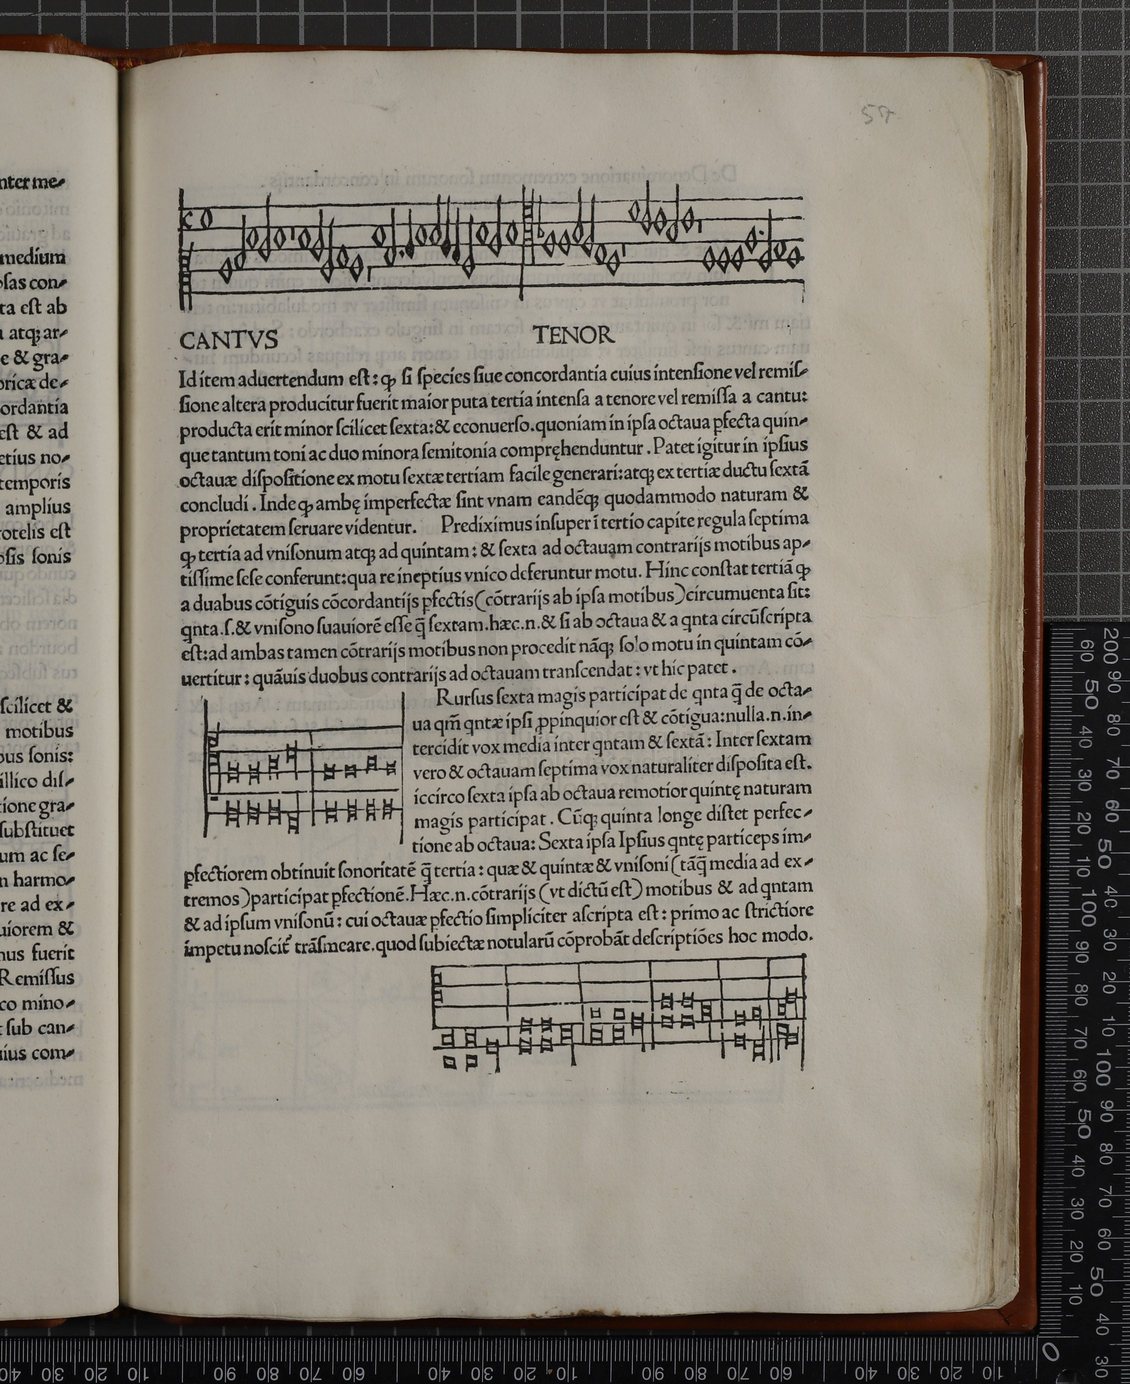 57
CANTVS TENOR
Id item aduertendum eſt: ꝙ ſi ſpecies ſiue concordantia cuius intenſione vel remiſ-
ſione altera producitur fuerit maior puta tertia intenſa a tenore vel remiſſa a cantu:
producta erit minor ſcilicet ſexta: & econuerſo. quoniam in ipſa octaua ꝑfecta quin-
que tantum toni ac duo minora ſemitonia compręhenduntur. Patet igitur in ipſius
octauæ diſpoſitione ex motu ſextæ tertiam facile generari: atqꝫ ex tertiæ ductu ſextā
concludi. Inde ꝙ ambę imperfectæ ſint vnam eandēqꝫ quodammodo naturam &
proprietatem ſeruare videntur. Prediximus inſuper ī tertio capite regula ſeptima
ꝙ tertia ad vniſonum atqꝫ ad quintam: & ſexta ad octauam contrarijs motibus ap-
tiſſime ſeſe conferunt: qua re ineptius vnico deferuntur motu. Hinc conſtat tertiā ꝙ
a duabus cōtiguis cōcordantijs ꝑfectis (cōtrarijs ab ipſa motibus) circumuenta ſit:
qnta .ſ. & vniſono ſuauiorē eſſe q̄ ſextam. hæc .n. & ſi ab octaua & a qnta circūſcripta
eſt: ad ambas tamen cōtrarijs motibus non procedit nāqꝫ ſolo motu in quintam cō-
uertitur: quāuis duobus contrarijs ad octauam tranſcendat: vt hic patet.
Rurſus ſexta magis participat de qnta q̄ de octa-
ua qm̄ qntæ ipſi ꝓpinquior eſt & cōtigua: nulla .n. in-
tercidit vox media inter qntam & ſextā: Inter ſextam
vero & octauam ſeptima vox naturaliter diſpoſita eſt.
iccirco ſexta ipſa ab octaua remotior quintę naturam
magis participat. Cūqꝫ quinta longe diſtet perfec-
tione ab octaua: Sexta ipſa Ipſius qntę particeps im-
ꝑfectiorem obtinuit ſonoritatē q̄ tertia: quæ & quintæ & vniſoni (tāq̄ media ad ex-
tremos) participat ꝑfectionē. Hæc .n. cōtrarijs (vt dictū eſt) motibus & ad qntam
& ad ipſum vniſonū: cui octauæ ꝑfectio ſimpliciter aſcripta eſt: primo ac ſtrictiore
impetu noſcit̄ trāſmeare. quod ſubiectæ notularū cōprobāt deſcriptiōes hoc modo.